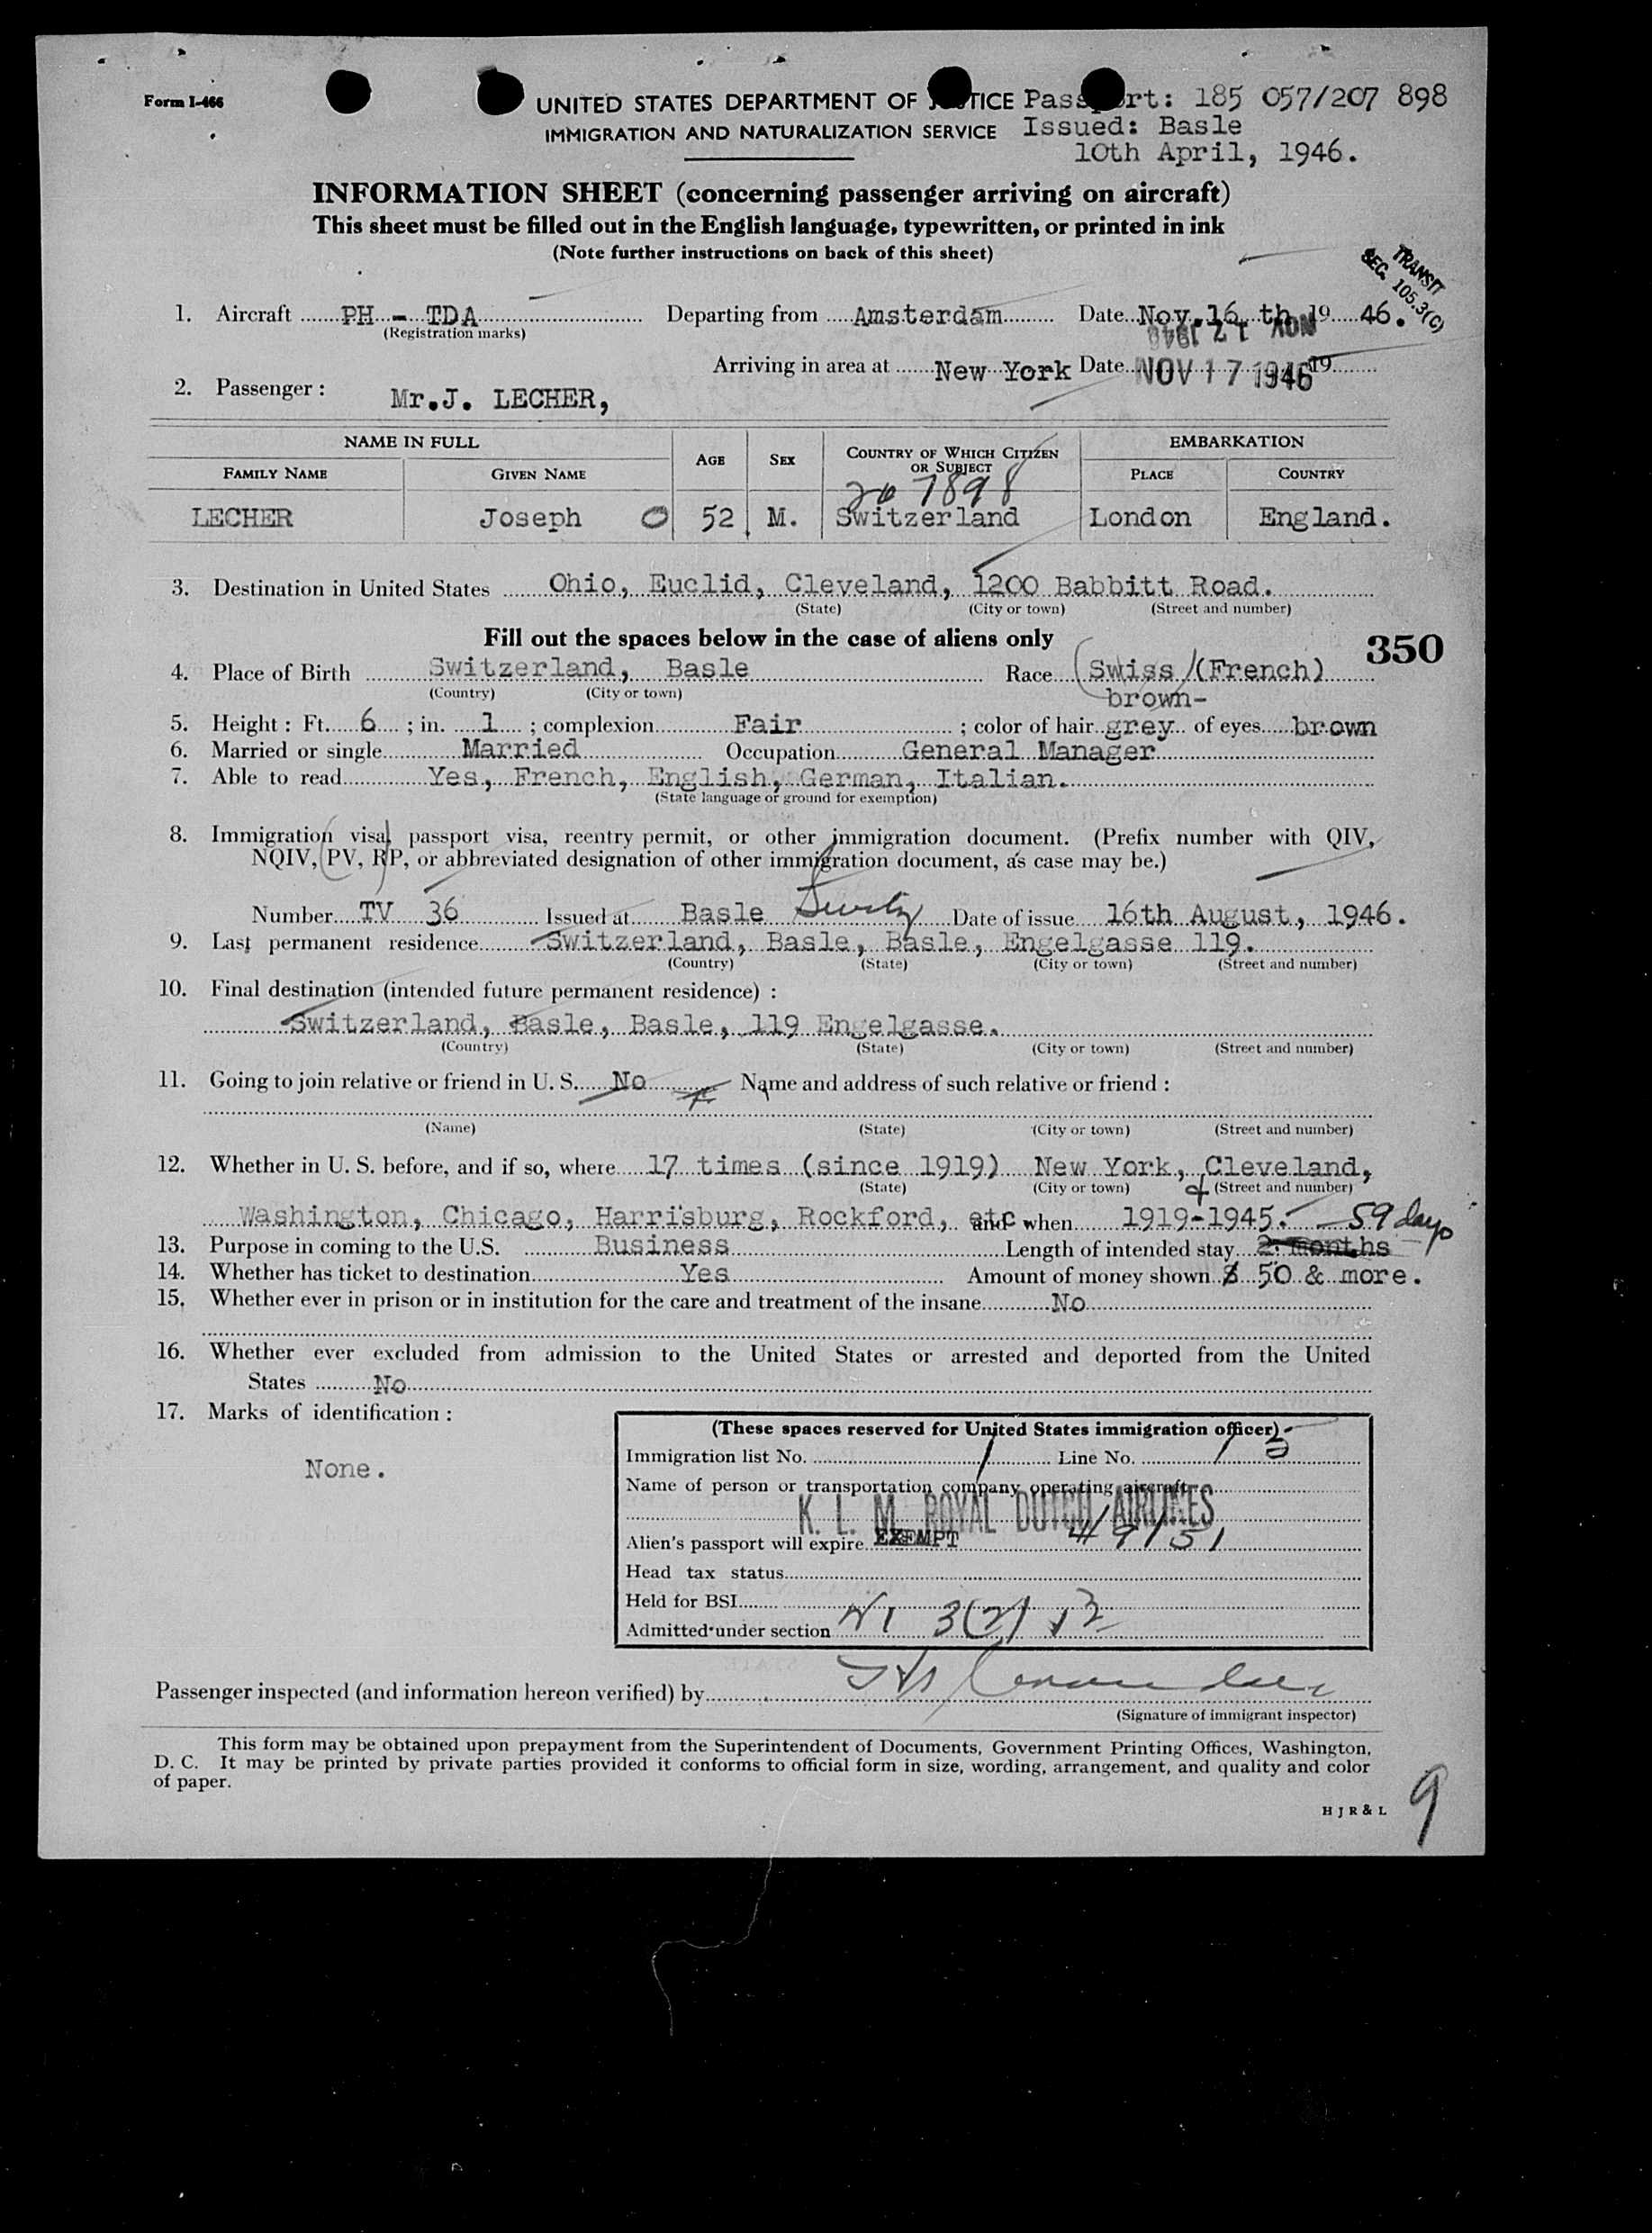 Form I-466
UNITED STATES DEPARTMENT OF JUSTICE Passport: 185 057/207 898
IMMIGRATION AND NATURALIZATION SERVICE Issued: Basle
10th April, 1946.
INFORMATION SHEET (concerning passenger arriving on aircraft)
This sheet must be filled out in the English language, typewritten, or printed in ink
(Note further instructions on back of this sheet)
TRANSIT
SEC. 105.3(C)
1. Aircraft PH - TDA Departing from Amsterdam Date Nov. 16 th 19 46.
(Registration marks)
NOV 17 1946
Arriving in area at New York Date NOV 17 1946 19
2. Passenger : Mr.J. LECHER,
NAME IN FULL AGE SEX COUNTRY OF WHICH CITIZEN OR SUBJECT EMBARKATION
FAMILY NAME GIVEN NAME PLACE COUNTRY
207898
LECHER Joseph O 52 M. Switzerland London England.
3. Destination in United States Ohio, Euclid, Cleveland, 1200 Babbitt Road.
(State) (City or town) (Street and number)
Fill out the spaces below in the case of aliens only
350
4. Place of Birth Switzerland, Basle Race Swiss (French)
(Country) (City or town)
brown-
5. Height : Ft. 6 ; in. 1 ; complexion Fair ; color of hair grey of eyes brown
6. Married or single Married Occupation General Manager
7. Able to read Yes, French, English, German, Italian.
(State language or ground for exemption)
8. Immigration visa, passport visa, reentry permit, or other immigration document. (Prefix number with QIV,
NQIV, PV, RP, or abbreviated designation of other immigration document, as case may be.)
Number TV 36 Issued at Basle Date of issue 16th August, 1946.
9. Last permanent residence Switzerland, Basle, Basle, Engelgasse 119.
(Country) (State) (City or town) (Street and number)
10. Final destination (intended future permanent residence) :
Switzerland, Basle, Basle, 119 Engelgasse.
(Country) (State) (City or town) (Street and number)
11. Going to join relative or friend in U. S. No Name and address of such relative or friend :
(Name) (State) (City or town) (Street and number)
12. Whether in U. S. before, and if so, where 17 times (since 1919) New York, Cleveland,
(State) (City or town) (Street and number)
Washington, Chicago, Harrisburg, Rockford, etc and when 1919-1945. 59 days
13. Purpose in coming to the U.S. Business Length of intended stay 2 months
14. Whether has ticket to destination Yes Amount of money shown $ 50 & more.
15. Whether ever in prison or in institution for the care and treatment of the insane No
16. Whether ever excluded from admission to the United States or arrested and deported from the United
States No
17. Marks of identification :
None.
(These spaces reserved for United States immigration officer)
Immigration list No. 1 Line No. 1
Name of person or transportation company operating aircraft
K. L. M. ROYAL DUTCH AIRLINES
Alien's passport will expire EXEMPT 4/9/51
Head tax status
Held for BSI
Admitted under section 3(2)
Passenger inspected (and information hereon verified) by
(Signature of immigrant inspector)
This form may be obtained upon prepayment from the Superintendent of Documents, Government Printing Offices, Washington,
D. C. It may be printed by private parties provided it conforms to official form in size, wording, arrangement, and quality and color
of paper.
H J R & L
9